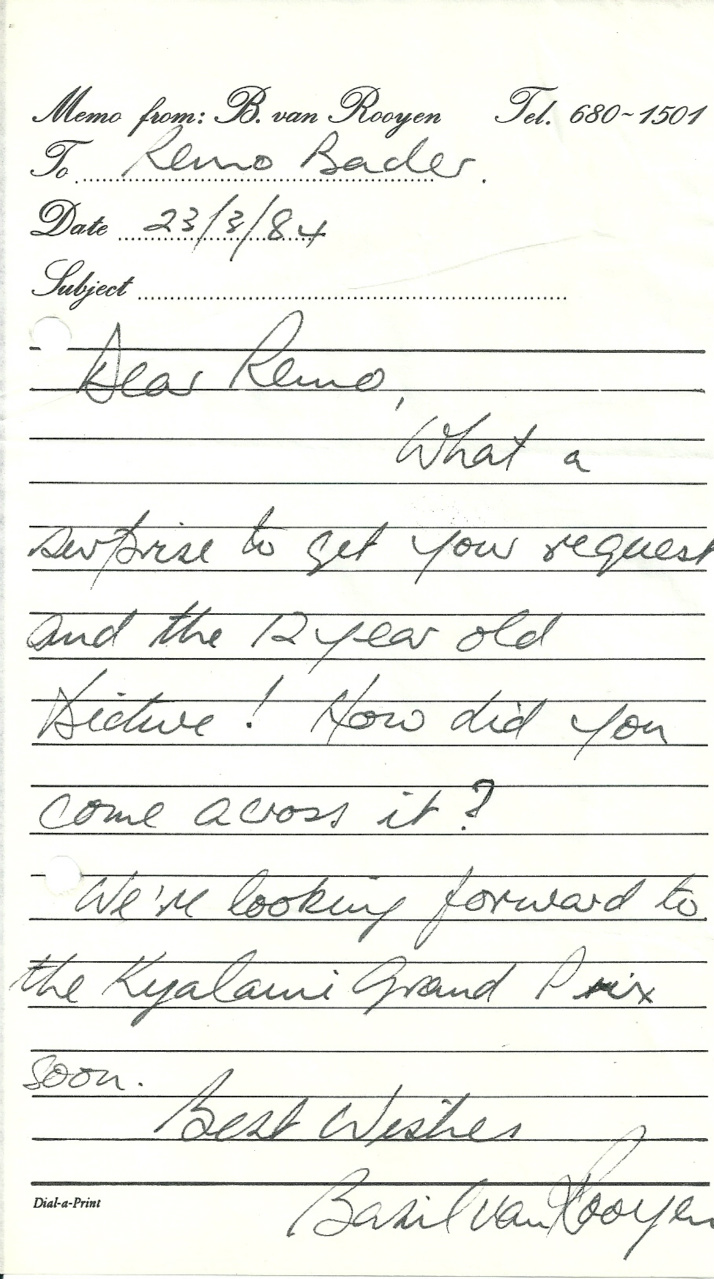 Memo from: B. van Rooyen Tel. 680~1501
To Remo Bader.
Date 23/3/84
Subject
Dear Remo,
What a
surprise to get your request
and the 12 year old
picture! How did you
come across it?
We're looking forward to
the Kyalami Grand Prix
soon.
Best Wishes
Basil van Rooyen
Dial-a-Print